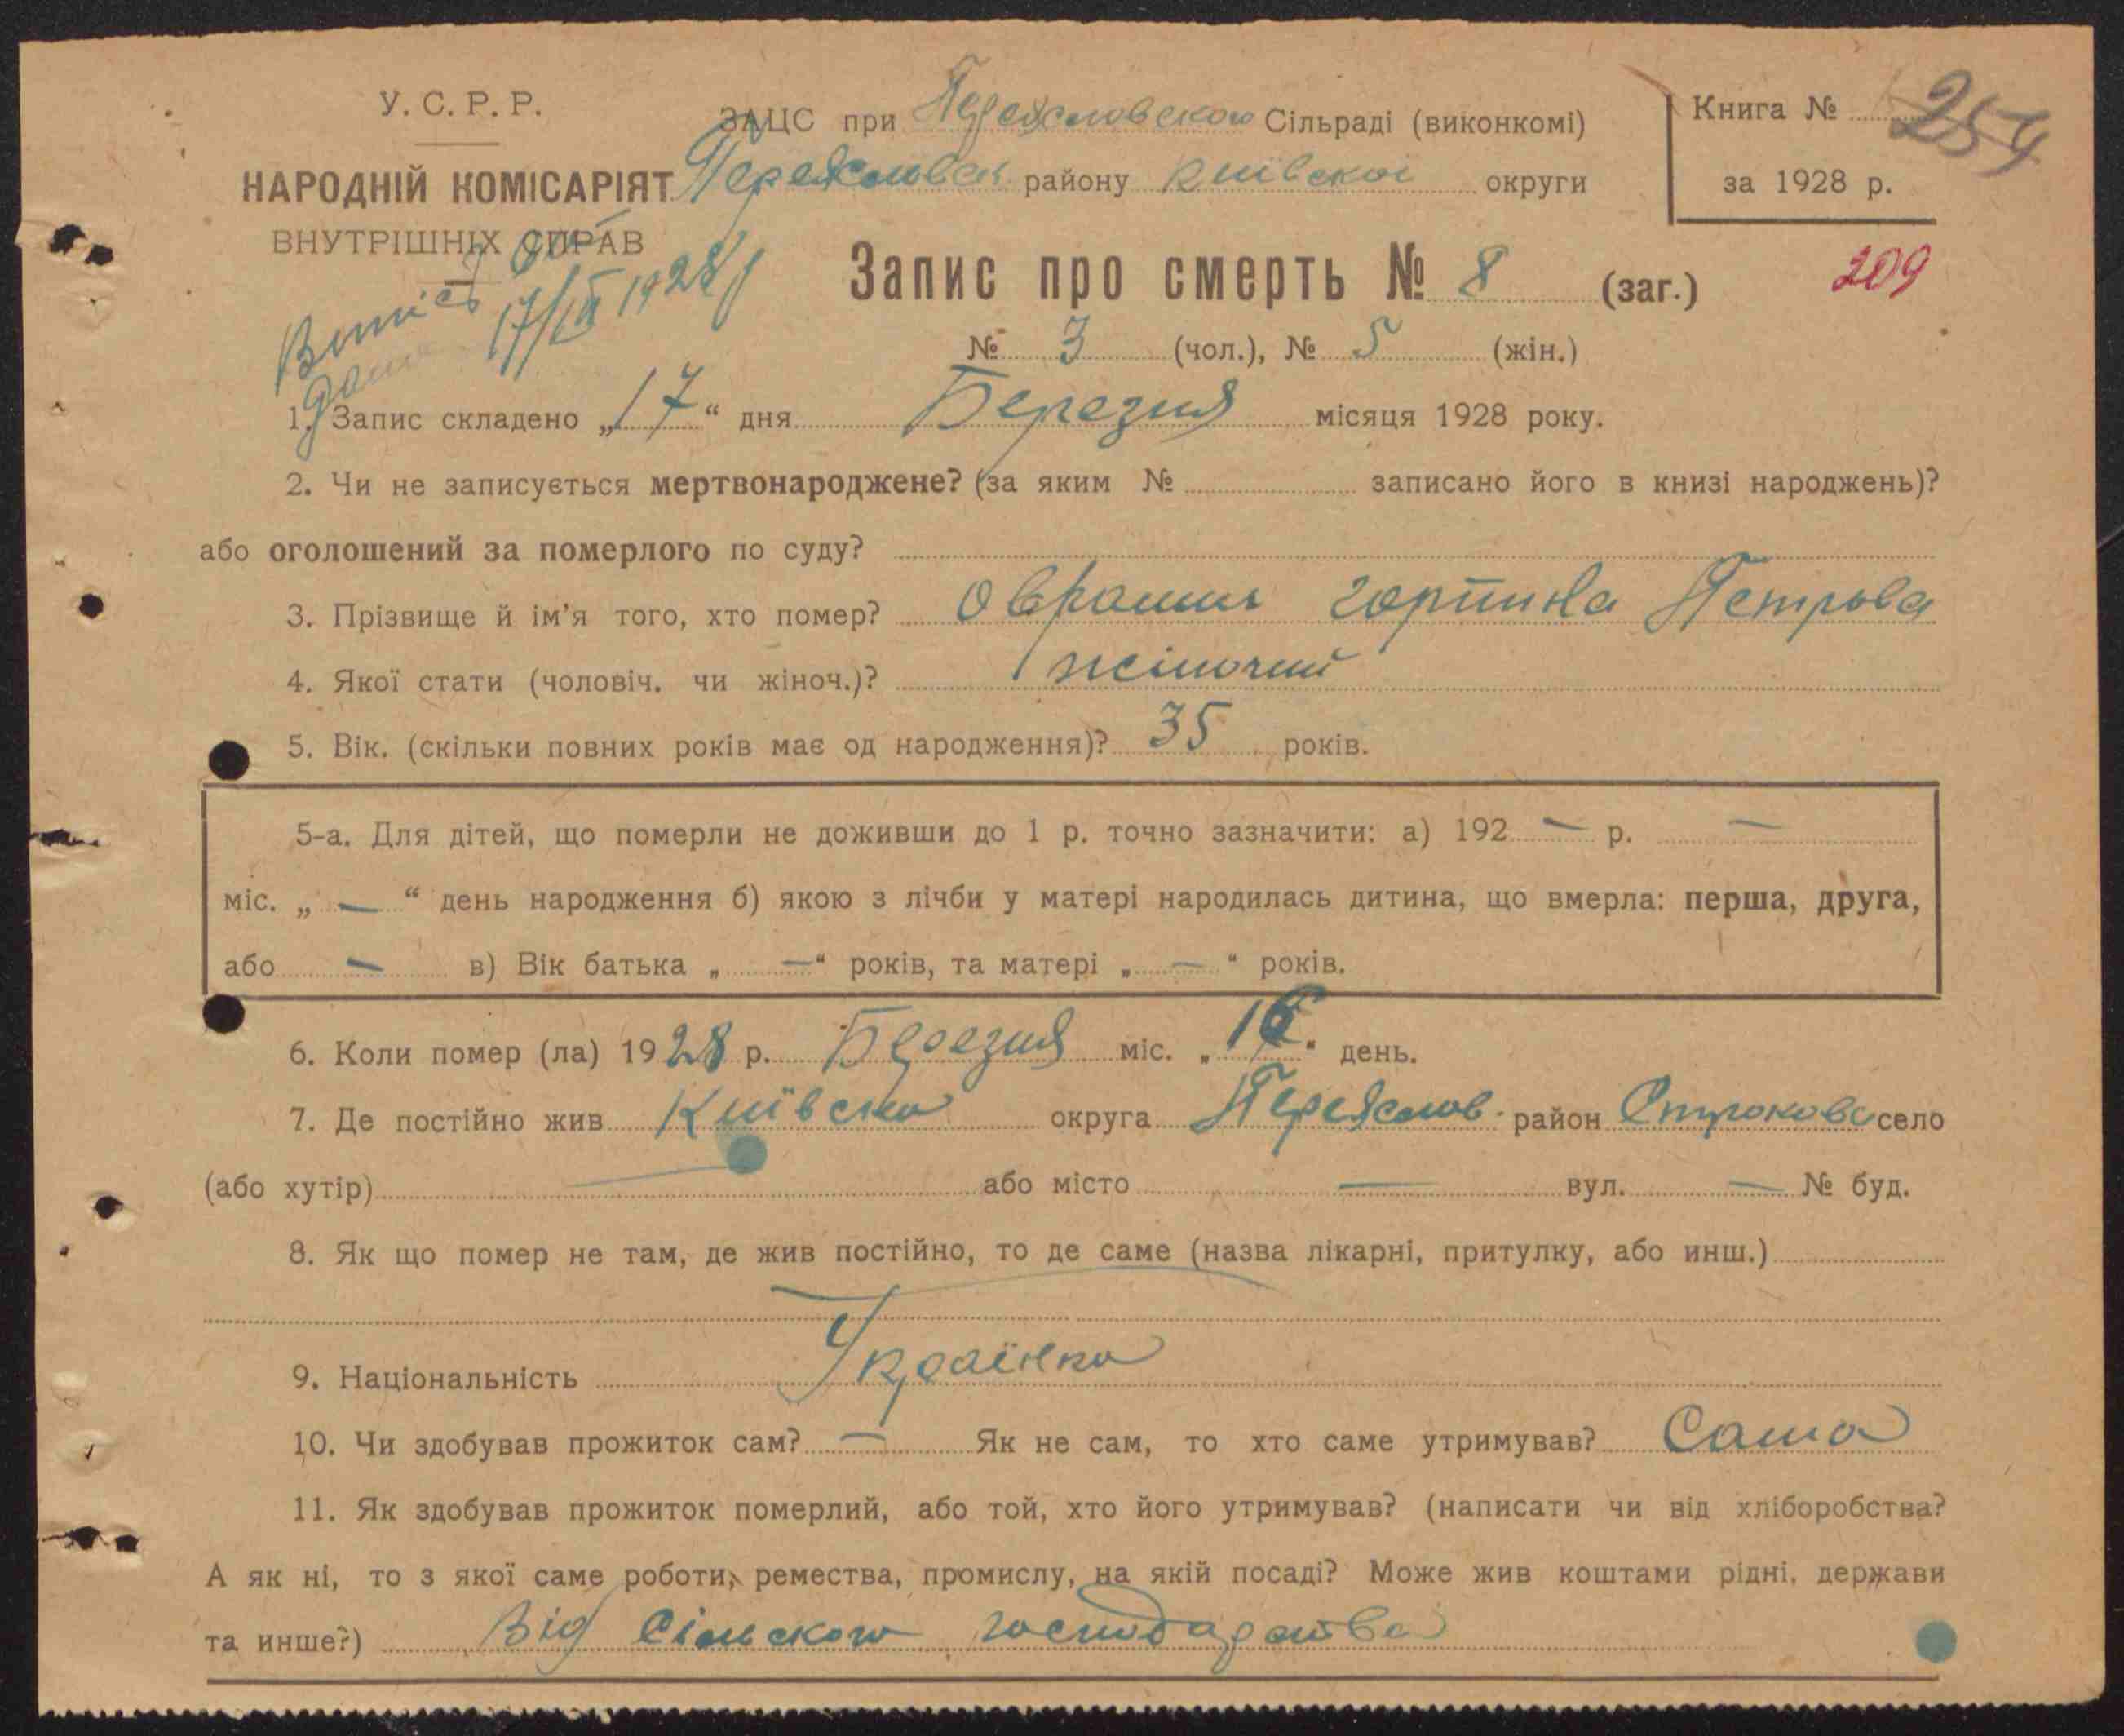 У. С. Р. Р.
НАРОДНІЙ КОМІСАРІЯТ
ВНУТРІШНІХ СПРАВ
ЗАЦС при Переясловскою Сільраді (виконкомі)
Переяслов району Київскої округи
Книга № 254
за 1928 р.
209
Запис про смерть № 8 (заг.)
№ 3 (чол.), № 5 (жін.)
17/III 1928р
1. Запис складено „17“ дня Березня місяця 1928 року.
2. Чи не записується мертвонароджене? (за яким № записано його в книзі народжень)?
або оголошений за померлого по суду?
3. Прізвище й ім'я того, хто помер? Петрова
4. Якої стати (чоловіч. чи жіноч.)? жіночий
5. Вік. (скільки повних років має од народження)? 35 років.
5-а. Для дітей, що померли не доживши до 1 р. точно зазначити: а) 192 — р. —
міс. „ — “ день народження б) якою з лічби у матері народилась дитина, що вмерла: перша, друга,
або — в) Вік батька „ — “ років, та матері „ — “ років.
6. Коли помер (ла) 1928 р. Березня міс. „16“ день.
7. Де постійно жив Київска округа Переяслов. район Строкова село
(або хутір) — або місто — вул. — № буд.
8. Як що помер не там, де жив постійно, то де саме (назва лікарні, притулку, або инш.)
9. Національність Українка
10. Чи здобував прожиток сам? — Як не сам, то хто саме утримував? Сама
11. Як здобував прожиток померлий, або той, хто його утримував? (написати чи від хліборобства?
А як ні, то з якої саме роботи, ремества, промислу, на якій посаді? Може жив коштами рідні, держави
та инше?) Від сільского господарства